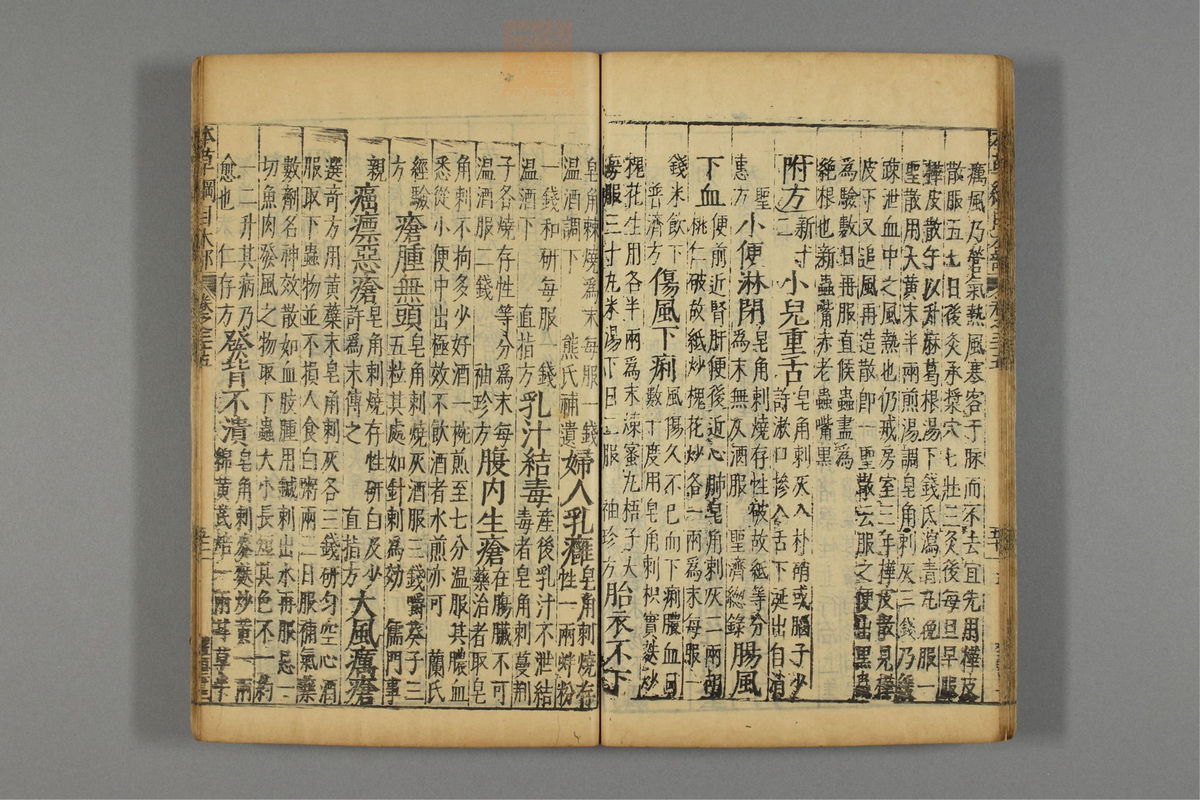 癘風乃營氣熱風寒客于脉而不去宜先用樺皮
散服五七日後灸承漿穴七壯三灸後每旦早服
樺皮散午以升麻葛根湯下錢氏瀉青丸晚服一
聖散用大黄末半兩煎湯調皂角刺灰三錢乃
疎泄血中之風熱也仍戒房室三年樺皮散見樺
皮下又追風再造散即一聖散云服之便出黒蟲
為驗數日再服直候蟲盡為
絶根也新蟲嘴赤老蟲嘴黒
附方 小兒重舌皂角刺灰入朴硝或腦子少
許漱口摻入舌下涎出自消
聖惠方 小便淋閉皂角刺燒存性破故紙等分
為末無灰酒服 聖濟總錄 腸風
下血便前近腎肝便後近心肺皂角刺灰二兩胡
桃仁破故紙炒槐花炒各一兩為末每服一
錢米飲下
普濟方 傷風下痢風傷久不已而下痢膿血日
數十度用皂角刺枳實麩炒
槐花生用各半兩為末煉蜜丸梧子大
每服三十丸米湯下日二服 袖珍方 胎衣不下
皂角棘燒為末每服一錢
温酒調下 熊氏補遺 婦人乳癰皂角刺燒存
性一兩蚌粉
一錢和研每服一錢
温酒下 直指方 乳汁結毒產後乳汁不泄結
毒者皂角刺蔓荆
子各燒存性等分為末每
温酒服二錢 袖珍方 腹内生瘡在腸臟不可
藥治者取皂
角刺不拘多少好酒一椀煎至七分温服其膿血
悉從小便中出極效不飲酒者水煎亦可 蘭氏
經驗方 瘡腫無頭皂角刺燒灰酒服三錢嚼葵子三
五粒其處如針刺為効 儒門事
親 癌瘭惡瘡皂角刺燒存性研白及少
許為末傅之 直指方 大風癘瘡
選奇方用黄蘗末皂角刺灰各三錢研匀空心酒
服取下蟲物並不損人食白粥兩三日服補氣藥
數劑名神效散如四肢腫用鍼刺出水再服忌一
切魚肉發風之物取下蟲大小長短其色不一約
一二升其病乃
愈也 仁存方 發背不潰皂角刺麥麩炒黄一兩
綿黄茋焙一兩甘草半
本草綱目木部 卷之三十五